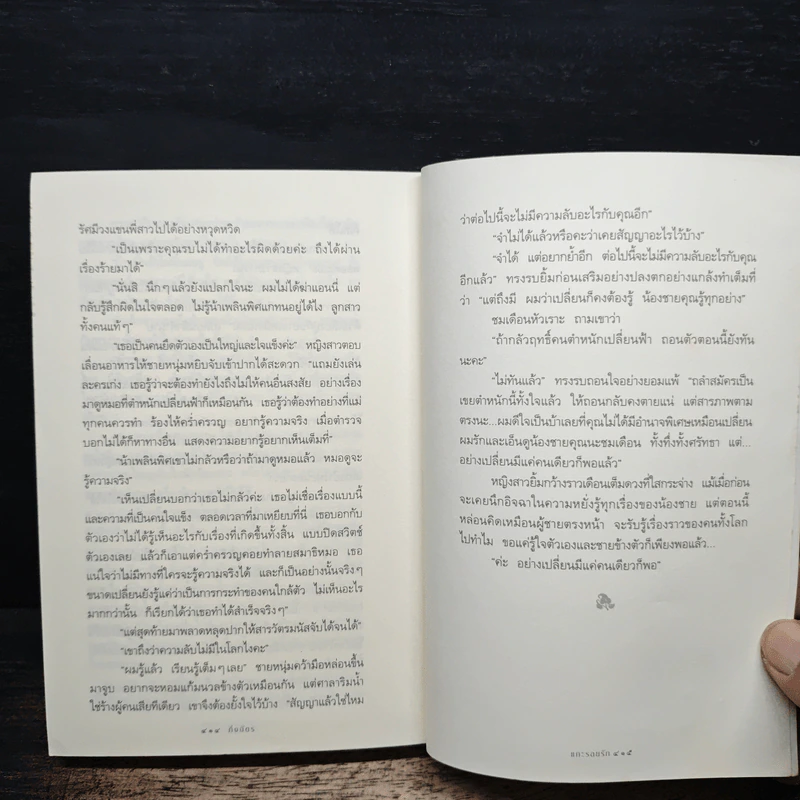 รัศมีวงแขนพี่สาวไปได้อย่างหวุดหวิด
“เป็นเพราะคุณรบไม่ได้ทำอะไรผิดด้วยค่ะ ถึงได้ผ่าน
เรื่องร้ายมาได้”
“นั่นสิ นึกๆ แล้วยังแปลกใจนะ ผมไม่ได้ฆ่าแอนนี่ แต่
กลับรู้สึกผิดในใจตลอด ไม่รู้น้าเพลินพิศแกทนอยู่ได้ไง ลูกสาว
ทั้งคนแท้ๆ”
“เธอเป็นคนยึดตัวเองเป็นใหญ่และใจแข็งค่ะ” หญิงสาวตอบ
เลื่อนอาหารให้ชายหนุ่มหยิบจับเข้าปากได้สะดวก “แถมยังเล่น
ละครเก่ง เธอรู้ว่าจะต้องทำยังไงถึงไม่ให้คนอื่นสงสัย อย่างเรื่อง
มาดูหมอที่ตำหนักเปลี่ยนฟ้าก็เหมือนกัน เธอรู้ว่าต้องทำอย่างที่แม่
ทุกคนควรทำ ร้องไห้คร่ำครวญ อยากรู้ความจริง เมื่อตำรวจ
บอกไม่ได้ก็หาทางอื่น แสดงความอยากรู้อยากเห็นเต็มที่”
“น้าเพลินพิศเขาไม่กลัวหรือว่าถ้ามาดูหมอแล้ว หมอดูจะ
รู้ความจริง”
“เห็นเปลี่ยนบอกว่าเธอไม่กลัวค่ะ เธอไม่เชื่อเรื่องแบบนี้
และความที่เป็นคนใจแข็ง ตลอดเวลาที่มาเหยียบที่นี่ เธอบอกกับ
ตัวเองว่าไม่ได้รู้เห็นอะไรกับเรื่องที่เกิดขึ้นทั้งสิ้น แบบปิดสวิตช์
ตัวเองเลย แล้วก็เอาแต่คร่ำครวญคอยทำลายสมาธิหมอ เธอ
แน่ใจว่าไม่มีทางที่ใครจะรู้ความจริงได้ และก็เป็นอย่างนั้นจริงๆ
ขนาดเปลี่ยนยังรู้แค่ว่าเป็นการกระทำของคนใกล้ตัว ไม่เห็นอะไร
มากกว่านั้น ก็เรียกได้ว่าเธอทำได้สำเร็จจริงๆ”
“แต่สุดท้ายมาพลาดหลุดปากให้สารวัตรมนัสจับได้จนได้”
“เขาถึงว่าความลับไม่มีในโลกไงคะ”
“ผมรู้แล้ว เรียนรู้เต็มๆ เลย” ชายหนุ่มคว้ามือหล่อนขึ้น
มาจูบ อยากจะหอมแก้มนวลข้างตัวเหมือนกัน แต่ศาลาริมน้ำ
ใช่ร้างผู้คนเสียทีเดียว เขาจึงต้องยั้งใจไว้บ้าง “สัญญาแล้วใช่ไหม
๔๑๔ กิ่งฉัตร
ว่าต่อไปนี้จะไม่มีความลับอะไรกับคุณอีก”
“จำไม่ได้แล้วหรือคะว่าเคยสัญญาอะไรไว้บ้าง”
“จำได้ แต่อยากย้ำอีก ต่อไปนี้จะไม่มีความลับอะไรกับคุณ
อีกแล้ว” ทรงรบยิ้มก่อนเสริมอย่างปลงตกอย่างแกล้งทำเต็มที่
ว่า “แต่ถึงมี ผมว่าเปลี่ยนก็คงต้องรู้ น้องชายคุณรู้ทุกอย่าง”
ชมเดือนหัวเราะ ถามเขาว่า
“ถ้ากลัวฤทธิ์คนตำหนักเปลี่ยนฟ้า ถอนตัวตอนนี้ยังทัน
นะคะ”
“ไม่ทันแล้ว” ทรงรบถอนใจอย่างยอมแพ้ “ถลำสมัครเป็น
เขยตำหนักนี้ทั้งใจแล้ว ให้ถอนกลับคงตายแน่ แต่สารภาพตาม
ตรงนะ...ผมดีใจเป็นบ้าเลยที่คุณไม่ได้มีอำนาจพิเศษเหมือนเปลี่ยน
ผมรักและเอ็นดูน้องชายคุณนะชมเดือน ทั้งทึ่งทั้งศรัทธา แต่...
อย่างเปลี่ยนมีแค่คนเดียวก็พอแล้ว”
หญิงสาวยิ้มกว้างราวเดือนเต็มดวงที่ใสกระจ่าง แม้เมื่อก่อน
จะเคยนึกอิจฉาในความหยั่งรู้ทุกเรื่องของน้องชาย แต่ตอนนี้
หล่อนคิดเหมือนผู้ชายตรงหน้า จะรับรู้เรื่องราวของคนทั้งโลก
ไปทำไม ขอแค่รู้ใจตัวเองและชายข้างตัวก็เพียงพอแล้ว...
“ค่ะ อย่างเปลี่ยนมีแค่คนเดียวก็พอ”
แกะรอยรัก ๔๑๕